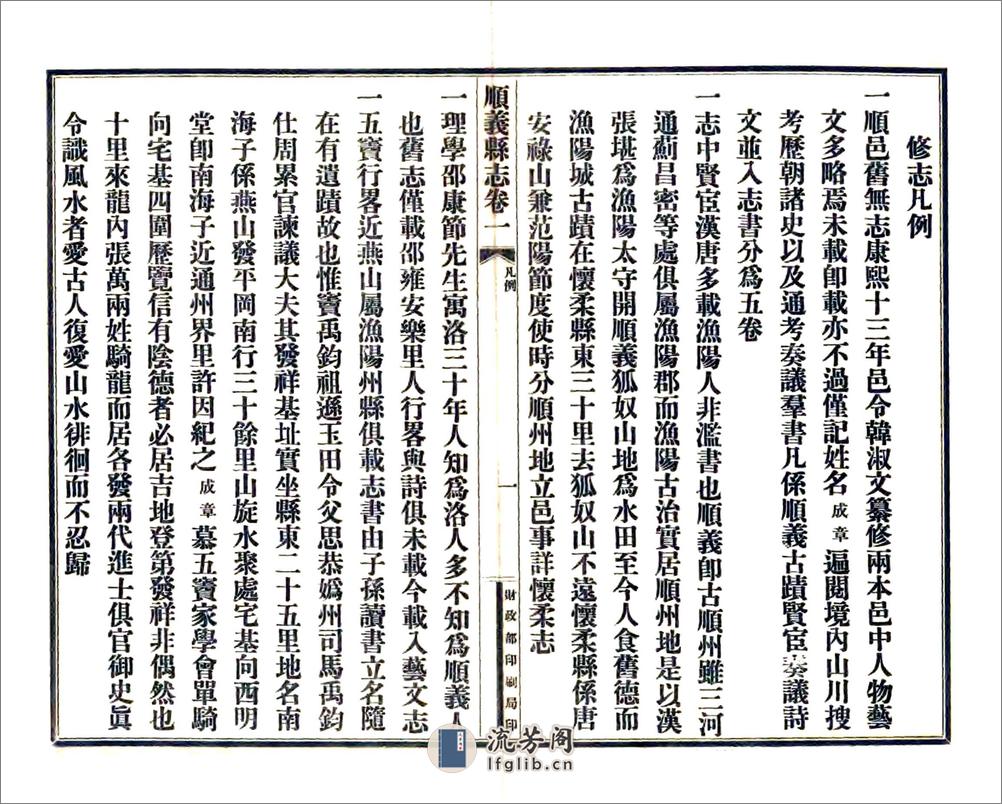 修志凡例
一順邑舊無志康熙十三年邑令韓淑文纂修兩本邑中人物藝
文多略焉未載卽載亦不過僅記姓名成章遍閱境內山川搜
考歷朝諸史以及通考奏議羣書凡係順義古蹟賢宦奏議詩
文並入志書分爲五卷
一志中賢宦漢唐多載漁陽人非濫書也順義卽古順州雖三河
通薊昌密等處俱屬漁陽郡而漁陽古治實居順州地是以漢
張堪爲漁陽太守開順義狐奴山地爲水田至今人食舊德而
漁陽城古蹟在懷柔縣東三十里去狐奴山不遠懷柔縣係唐
安祿山兼范陽節度使時分順州地立邑事詳懷柔志
順義縣志卷一
凡例
一
財政部印刷局印
一理學邵康節先生寓洛三十年人知爲洛人多不知爲順義人
也舊志僅載邵雍安樂里人行畧與詩俱未載今載入藝文志
一五竇行畧近燕山屬漁陽州縣俱載志書由子孫讀書立名隨
在有遺蹟故也惟竇禹鈞祖遜玉田令父思恭嬀州司馬禹鈞
仕周累官諫議大夫其發祥基址實坐縣東二十五里地名南
海子係燕山發平岡南行三十餘里山旋水聚處宅基向西明
堂卽南海子近通州界里許因紀之成章慕五竇家學會單騎
向宅基四圍歷覽信有陰德者必居吉地登第發祥非偶然也
十里來龍內張萬兩姓騎龍而居各發兩代進士俱官御史眞
令識風水者愛古人復愛山水徘徊而不忍歸
流芳阁
lfglib.cn